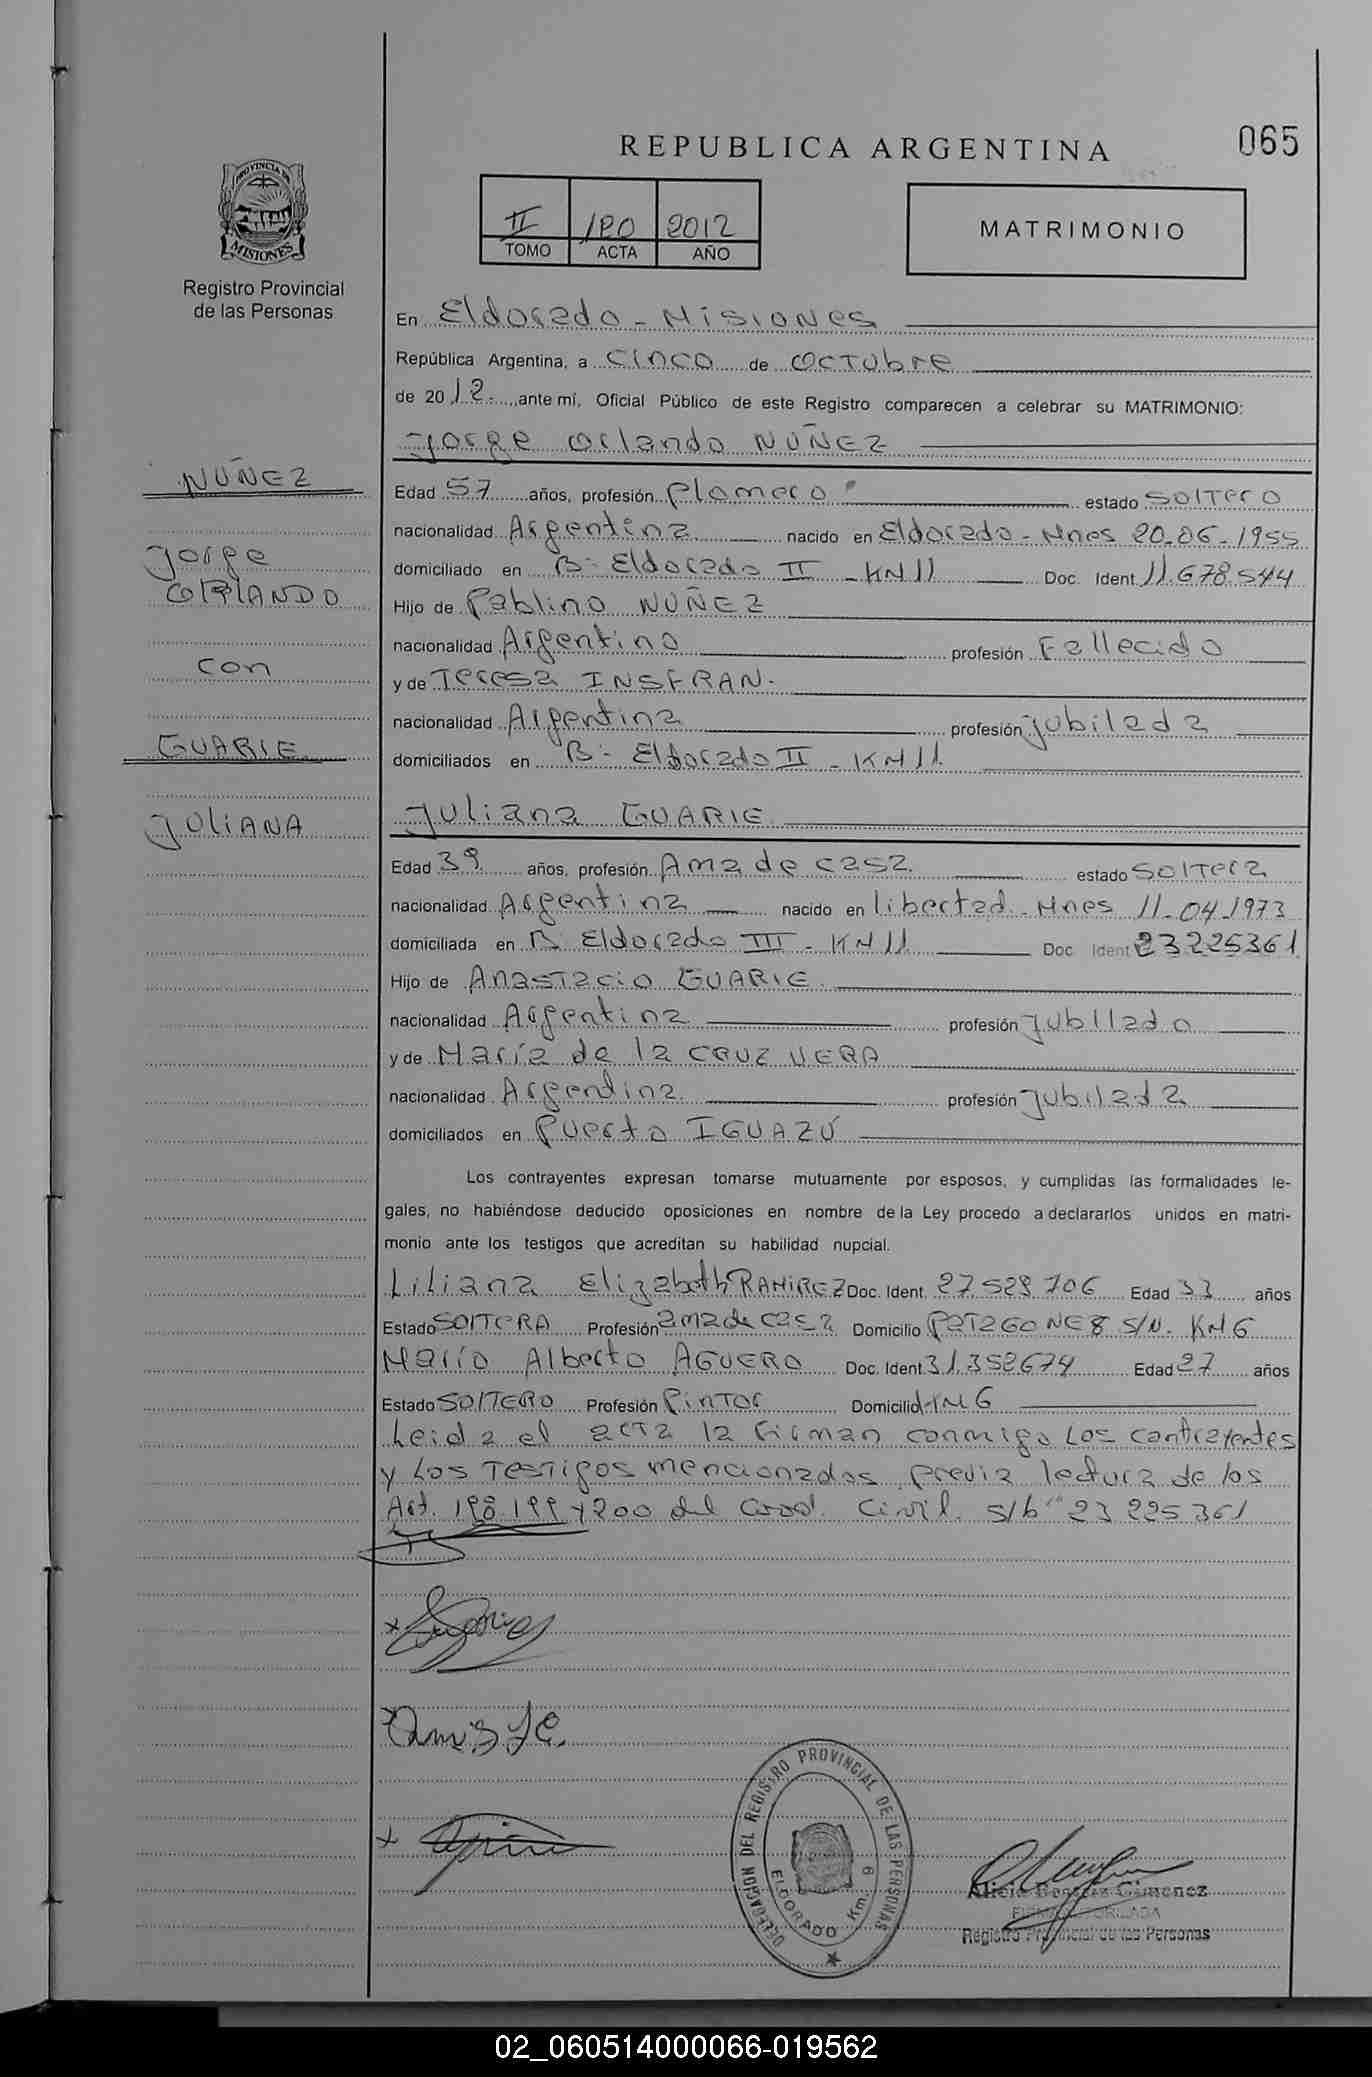 065
REPUBLICA ARGENTINA
PROVINCIA DE
MISIONES
Registro Provincial
de las Personas
II 120 2012
TOMO ACTA AÑO
MATRIMONIO
En Eldorado - Misiones
República Argentina, a cinco de octubre
de 2012 ante mí, Oficial Público de este Registro comparecen a celebrar su MATRIMONIO:
Jorge Orlando NUÑEZ
NUÑEZ
Jorge
ORLANDO
con
GUARIE
JULIANA
Edad 57 años, profesión Plomero estado SOLTERO
nacionalidad Argentina nacido en Eldorado - Mnes 20-06-1955
domiciliado en B: Eldorado II - KM 11 Doc. Ident. 11.678.544
Hijo de Pablino NUÑEZ
nacionalidad Argentino profesión Fallecido
y de Teresa INSFRAN.
nacionalidad Argentina profesión jubilada
domiciliados en B: Eldorado II - KM 11.
Juliana GUARIE
Edad 39 años, profesión Ama de casa estado SOLTERA
nacionalidad Argentina nacido en Libertad - Mnes 11-04-1973
domiciliada en B: Eldorado III - KM 11 Doc. Ident 23225361
Hijo de Anastacio GUARIE
nacionalidad Argentina profesión jubilado
y de María de la CRUZ VERA
nacionalidad Argentina profesión jubilada
domiciliados en Puerto IGUAZÚ
Los contrayentes expresan tomarse mutuamente por esposos, y cumplidas las formalidades le-
gales, no habiéndose deducido oposiciones en nombre de la Ley procedo a declararlos unidos en matri-
monio ante los testigos que acreditan su habilidad nupcial.
Liliana Elizabeth RAMIREZ Doc. Ident. 27.529.706 Edad 33 años
Estado SOLTERA Profesión ama de casa Domicilio PATAGONES S/N. KM 6
Mario Alberto AGUERO Doc. Ident 31.352674 Edad 27 años
Estado SOLTERO Profesión Pintor Domicilio KM 6
Leida el acta la firman conmigo los contrayentes
y los testigos mencionados previa lectura de los
Art. 198.199 y 200 del Cod. Civil. s/b "23 225 361
DELEGACION DEL REGISTRO PROVINCIAL DE LAS PERSONAS
ELDORADO Km. 6
Alicia Gimenez
Registro Provincial de las Personas
02_060514000066-019562